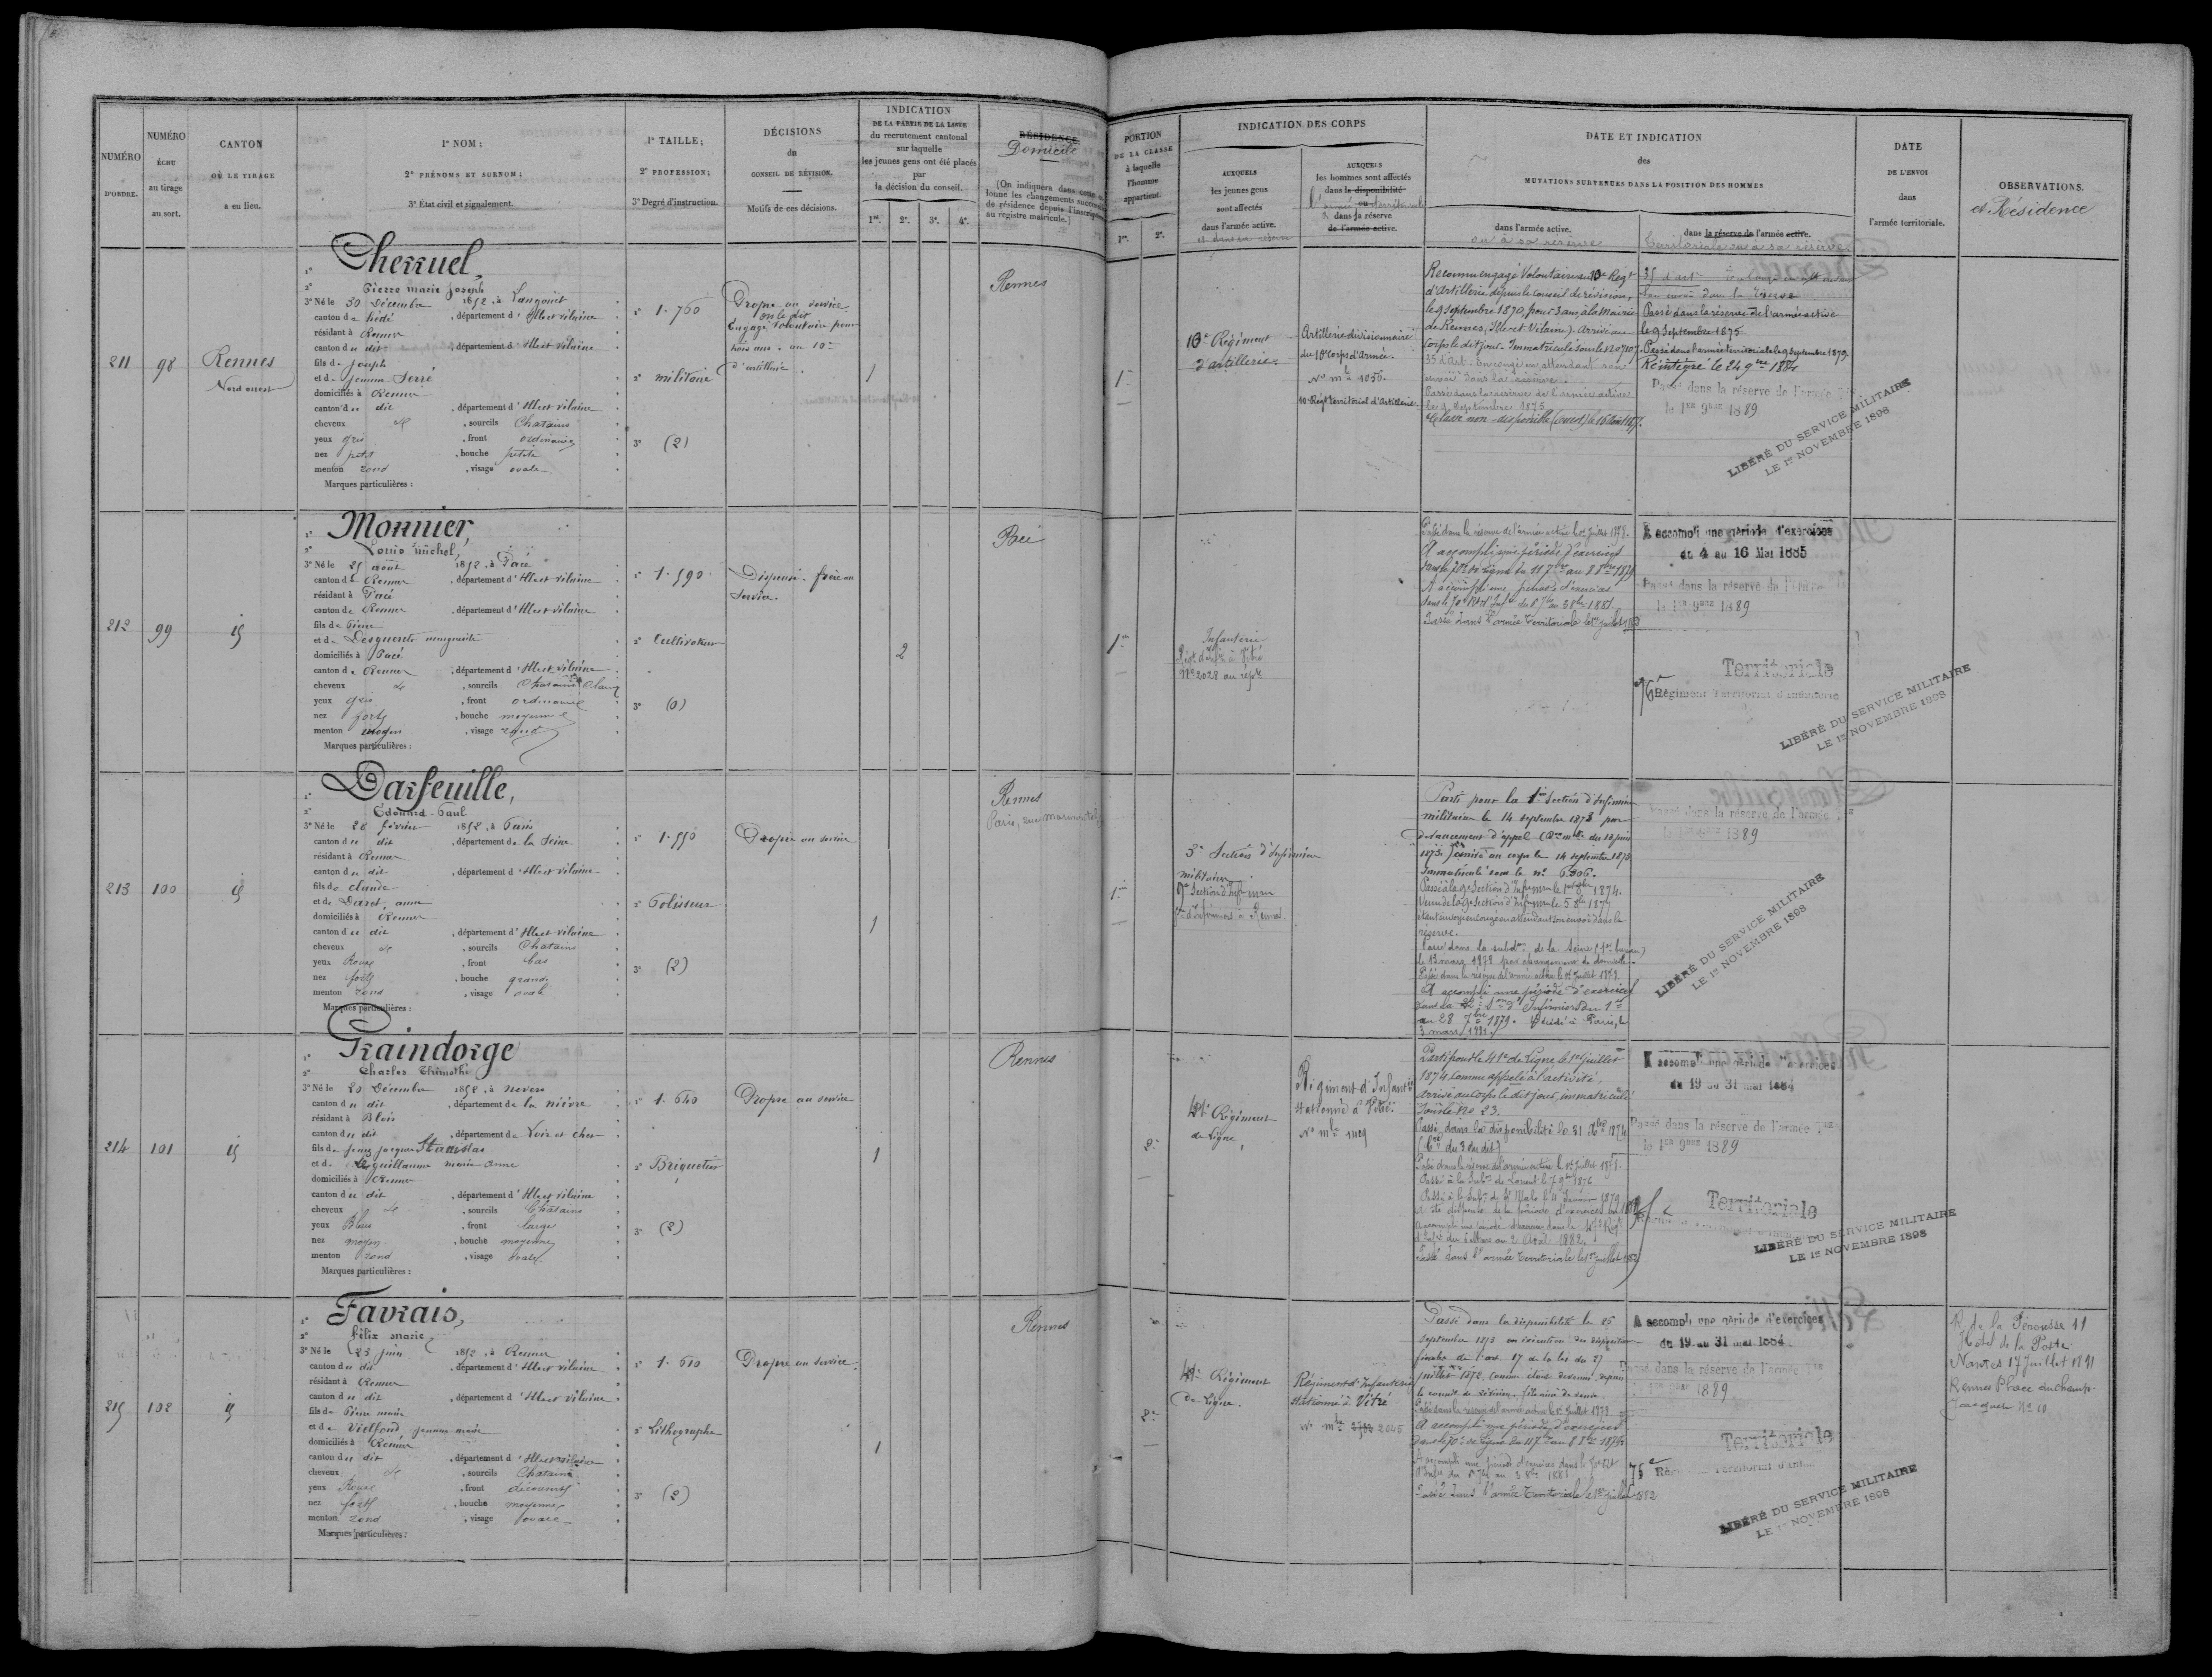 NUMÉRO
D'ORDRE.
NUMÉRO
ÉCHU
au tirage
au sort.
CANTON
OÙ LE TIRAGE
a eu lieu.
1° NOM ;
2° PRÉNOMS ET SURNOM ;
3° État civil et signalement.
1° TAILLE ;
2° PROFESSION ;
3° Degré d'instruction.
DÉCISIONS
du
CONSEIL DE RÉVISION.
Motifs de ces décisions.
INDICATION
DE LA PARTIE DE LA LISTE
du recrutement cantonal
sur laquelle
les jeunes gens ont été placés
par
la décision du conseil.
1re. 2e. 3e. 4e.
RÉSIDENCE
Domicile
(On indiquera dans cette co-
lonne les changements successifs
de résidence depuis l'inscription
au registre matricule.)
PORTION
DE LA CLASSE
à laquelle
l'homme
appartient.
1re. 2e.
INDICATION DES CORPS
AUXQUELS
les jeunes gens
sont affectés
dans l'armée active.
et dans sa réserve
AUXQUELS
les hommes sont affectés
dans la disponibilité
ou
l'armée territoriale
dans la réserve
de l'armée active.
DATE ET INDICATION
des
MUTATIONS SURVENUES DANS LA POSITION DES HOMMES
dans l'armée active.
ou à sa réserve
dans la réserve de l'armée active.
territoriale ou à sa réserve
DATE
DE L'ENVOI
dans
l'armée territoriale.
OBSERVATIONS.
et Résidence
211
98
Rennes
Nord ouest
1° Cherruel,
2° Pierre marie Joseph
3° Né le 30 Décembre 1852, à Langouët
canton de hédé, département d'Ille et vilaine
résidant à Rennes
canton du dit, département d'Ille et vilaine
fils de Joseph
et de Jeanne Serré
domiciliés à Rennes
canton du dit, département d'Ille et vilaine
cheveux et, sourcils Chatains
yeux gris, front ordinaire
nez petit, bouche petite
menton rond, visage ovale
Marques particulières :
1° 1.760
2° militaire
3° (2)
Propre au service
on le dit
Engagé Volontaire pour
trois ans. au 10e
d'artillerie.
1
Rennes
1re
10e Régiment
d'artillerie.
Artillerie divisionnaire
du 10e corps d'Armée.
No mle 1056.
10e Régt territorial d'Artillerie.
Reconnu engagé Volontaire au 10e Regt
d'Artillerie depuis le conseil de révision,
le 9 Septembre 1870, pour 3 ans, à la Mairie
de Rennes, (Ille et Vilaine). Arrivé au
corps le dit jour. Immatriculé sous le No 7107.
35 d'art. En congé en attendant son
envoi dans la réserve.
Passé dans la réserve de l'armée active
le 9 Septembre 1875
Passé dans la réserve de l'armée active
le 9 Septembre 1875
Passé dans l'armée territoriale le 9 Septembre 1879.
Réintégré le 24 9bre 1881
Passé dans la réserve de l'armée Tle
le 1er 9bre 1889
LIBÉRÉ DU SERVICE MILITAIRE
LE 1er NOVEMBRE 1898
212
99
id
1° Monnier,
2° Louis michel,
3° Né le 25 août 1852, à Pacé
canton de Rennes, département d'Ille et vilaine
résidant à Pacé
canton de Rennes, département d'Ille et vilaine
fils de Pierre
et de Desguerets marguerite
domiciliés à Pacé
canton de Rennes, département d'Ille et vilaine
cheveux et, sourcils Chatains Clairs
yeux gris, front ordinaire
nez fort, bouche moyenne
menton moyen, visage rond
Marques particulières :
1° 1.590
2° Cultivateur
3° (0)
Dispensé. frère au
Service.
2
1re
Infanterie
Régt d'Infie à Vitré
No 2028 au répre
Passé dans la réserve de l'armée active le 1er Juillet 1878.
A accompli une période d'exercices
dans le 70e de ligne du 11 7bre au 8 8bre 1879
A accompli une période d'exercices
dans le 70e Rt d'Infie du 8 7bre au 3 8bre 1881.
Passé dans l'armée Territoriale le 1er Juillet 1882
A accompli une période d'exercices
du 4 au 16 Mai 1885
Passé dans la réserve de l'armée
le 1er 9bre 1889
Territoriale
76e Régiment Territorial d'Infanterie
LIBÉRÉ DU SERVICE MILITAIRE
LE 1er NOVEMBRE 1898
213
100
id
1° Darfeuille,
2° Édouard Paul
3° Né le 28 février 1852, à Paris
canton du dit, département de la Seine
résidant à Rennes
canton du dit, département d'Ille et vilaine
fils de claude
et de Daret, anne
domiciliés à Rennes
canton du dit, département d'Ille et vilaine
cheveux et, sourcils Chatains
yeux Roux, front bas
nez fort, bouche grande
menton rond, visage ovale
Marques particulières :
1° 1.550
2° Polisseur
3° (2)
Propre au service
1
Rennes
1re
3e Section d'Infirmiers
militaires.
9e Section d'Infirmiers
Parti pour la 1re Section d'Infirmiers
militaires le 14 septembre 1873 par
devancement d'appel
Arrivé au corps le 14 septembre 1873
Immatriculé sous le No 6306.
Passé à la 9e Section d'Infirmiers le 1er 8bre 1874.
étant envoyé en congé en attendant son envoi dans la
réserve.
Passé dans la subdon de la Seine (1er bureau)
le 13 mars 1878 par changement de domicile.
Passé dans la réserve de l'armée active le 1er Juillet 1878.
A accompli une période d'exercices
dans la 22e Son d'Infirmiers du 1er
au 28 7bre 1879. Décédé à Paris, le
3 mars 1881.
Passé dans la réserve de l'armée Tle
le 1er 9bre 1889
LIBÉRÉ DU SERVICE MILITAIRE
LE 1er NOVEMBRE 1898
214
101
id
1° Graindorge
2° Charles Thimothé
3° Né le 20 Décembre 1852, à nevers
canton du dit, département de la nièvre
résidant à Blois
canton du dit, département de Loir et cher
fils de jacques Stanislas
et de Leguillaume marie Anne
domiciliés à Rennes
canton du dit, département d'Ille et vilaine
cheveux et, sourcils Chatains
yeux Bleus, front large
nez moyen, bouche moyenne
menton rond, visage ovale
Marques particulières :
1° 1.640
2° Briquetier
3° (2)
Propre au service
1
Rennes
2e
41e Régiment
de Ligne,
Régiment d'Infanterie
stationné à Vitré.
No mle 1109
Parti pour le 41e de Ligne le 1er juillet
1874, comme appelé à l'activité,
Arrivé au corps le dit jour, immatriculé
sous le No 23.
Passé dans la disponibilité le 31 Xbre 1874
Passé dans la réserve de l'armée active le 1er Juillet 1878.
Passé à la Subon de Lorient le 7 9bre 1876
Passé à la Subon de St Malo le 4 Janvier 1879
d'Infie du 6 Mars au 2 Avril 1882.
Passé dans l'armée Territoriale le 1er Juillet 1882
A accompli une période d'exercices
du 19 au 31 mai 1884
Passé dans la réserve de l'armée Tle
le 1er 9bre 1889
Territoriale
LIBÉRÉ DU SERVICE MILITAIRE
LE 1er NOVEMBRE 1898
215
102
id
1° Favrais,
2° Félix Marie
3° Né le 23 juin 1852, à Rennes
canton du dit, département d'Ille et vilaine
résidant à Rennes
canton du dit, département d'Ille et vilaine
fils de Pierre marie
et de Vielfond jeanne marie
domiciliés à Rennes
canton du dit, département d'Ille et vilaine
cheveux et, sourcils Chatains
yeux Roux, front découvert
nez fort, bouche moyenne
menton rond, visage ovale
Marques particulières :
1° 1.610
2° Lithographe
3° (2)
Propre au service.
1
Rennes
2e
41e Régiment
de Ligne.
Régiment d'Infanterie
stationné à Vitré
No mle 2045
Passé dans la disponibilité le 26
septembre 1873 en exécution des dispositions
finales de l'art. 17 de la loi du 27
juillet 1872, comme étant devenu, depuis
le conseil de révision, fils aîné de veuve.
Passé dans la réserve de l'armée active le 1er Juillet 1878
A accompli une période d'exercices
dans le 70e de ligne du 11 7bre au 8 8bre 1879
A accompli une période d'exercices dans le 70e Rt
d'Infie du 6 7bre au 3 8bre 1881
Passé dans l'armée Territoriale le 1er Juillet 1882
A accompli une période d'exercices
du 19 au 31 mai 1884.
Passé dans la réserve de l'armée Tle
le 1er 9bre 1889
Territoriale
75e Régiment Territorial d'Inf
LIBÉRÉ DU SERVICE MILITAIRE
LE 1er NOVEMBRE 1898
R. de la Pérousse 11
Hotel de la Poste
Nantes 17 Juillet 1891
Rennes Place du Champ
Jacquet No 10